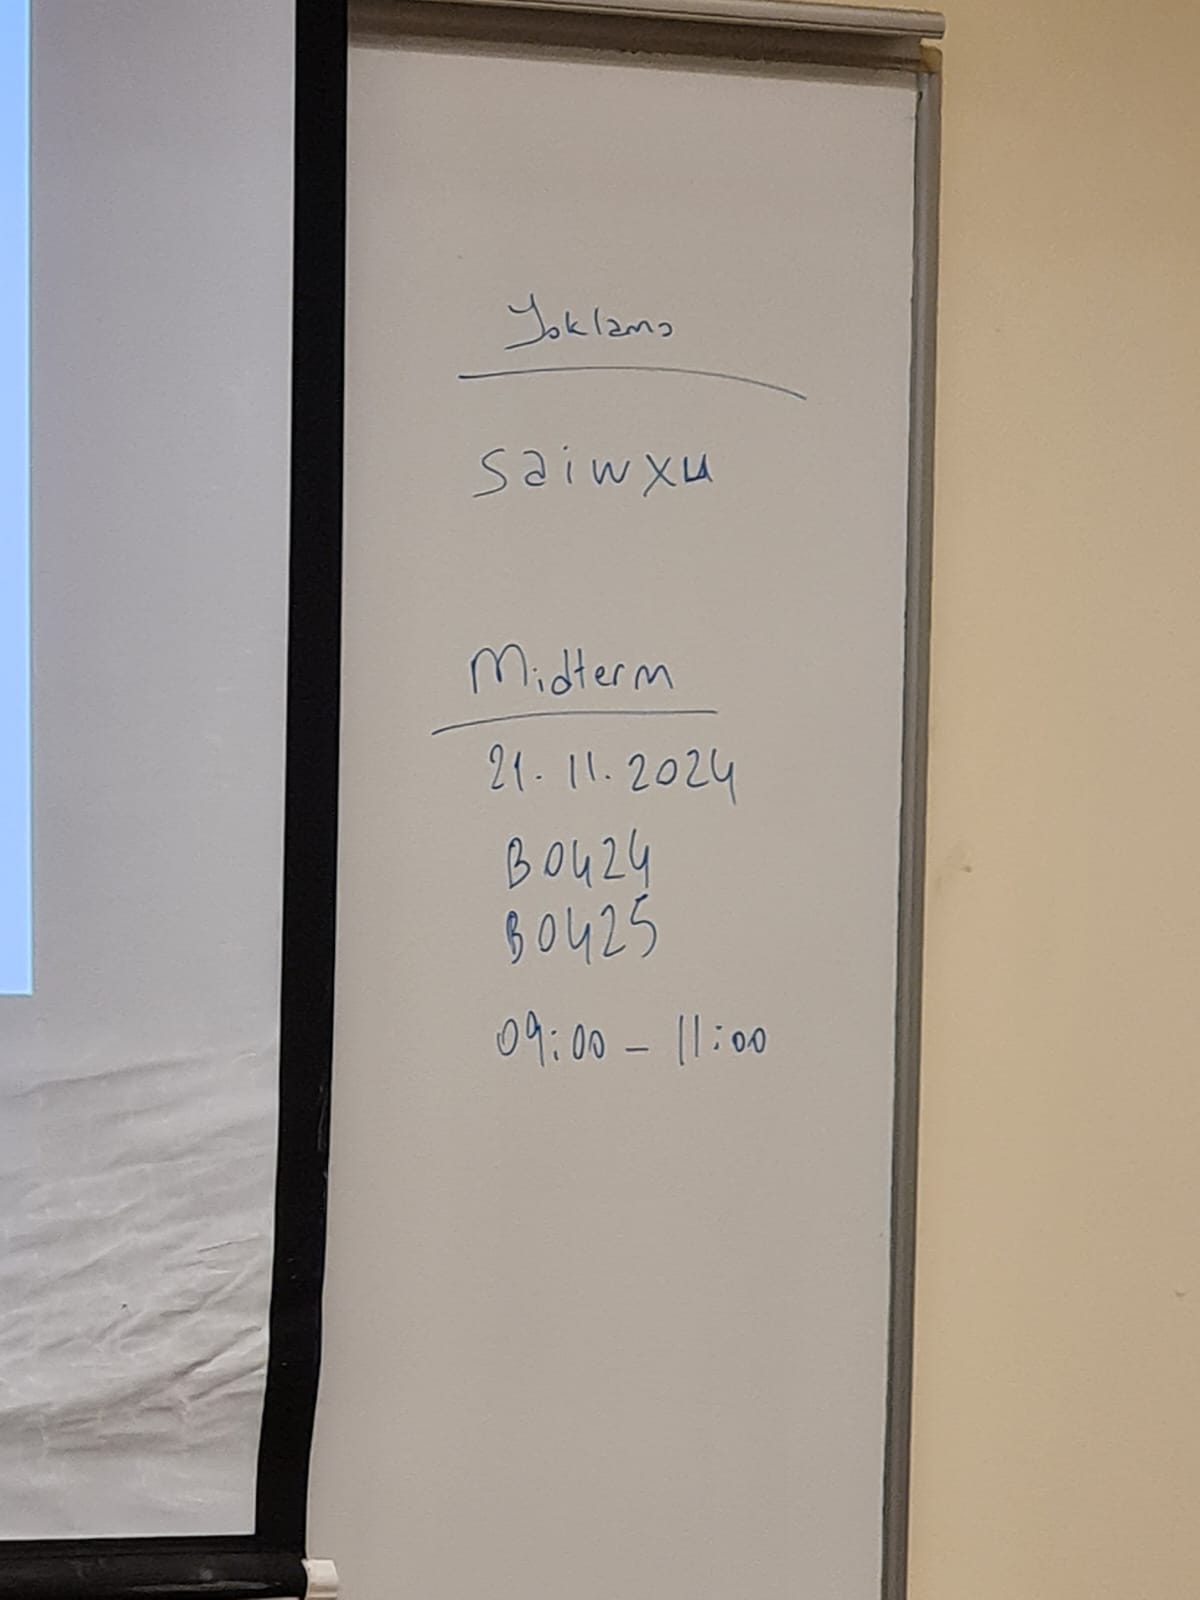 Yoklama
saiwxu
Midterm
21.11.2024
B0424
B0425
09:00 - 11:00